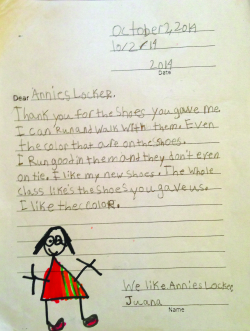 October 2, 2014
10/2/14
2014
Date
Dear Annies Locker.
Thank you for the shoes you gave me
I can Run and walk with them. Even
the color that are on the shoes.
I Run good in them and they don't even
on tie. I like my new shoes. The whole
class like's the shoes you gave us.
I like the coloR.
We like Annies Locker
Juana
Name